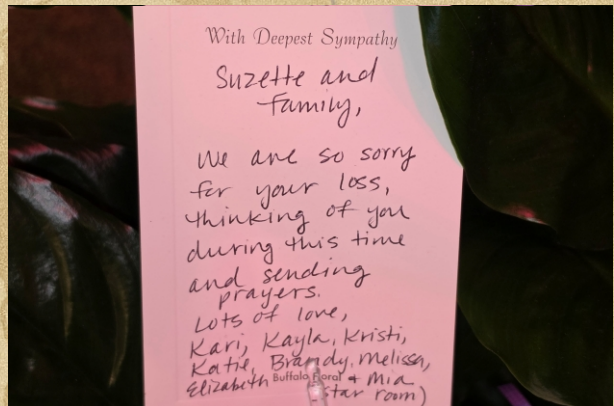 With Deepest Sympathy
Suzette and
Family,
We are so sorry
for your loss,
thinking of you
during this time
and sending
prayers.
Lots of love,
Kari, Kayla, Kristi,
Katie, Brandy, Melissa,
Elizabeth & Mia
Buffalo Floral
star room)